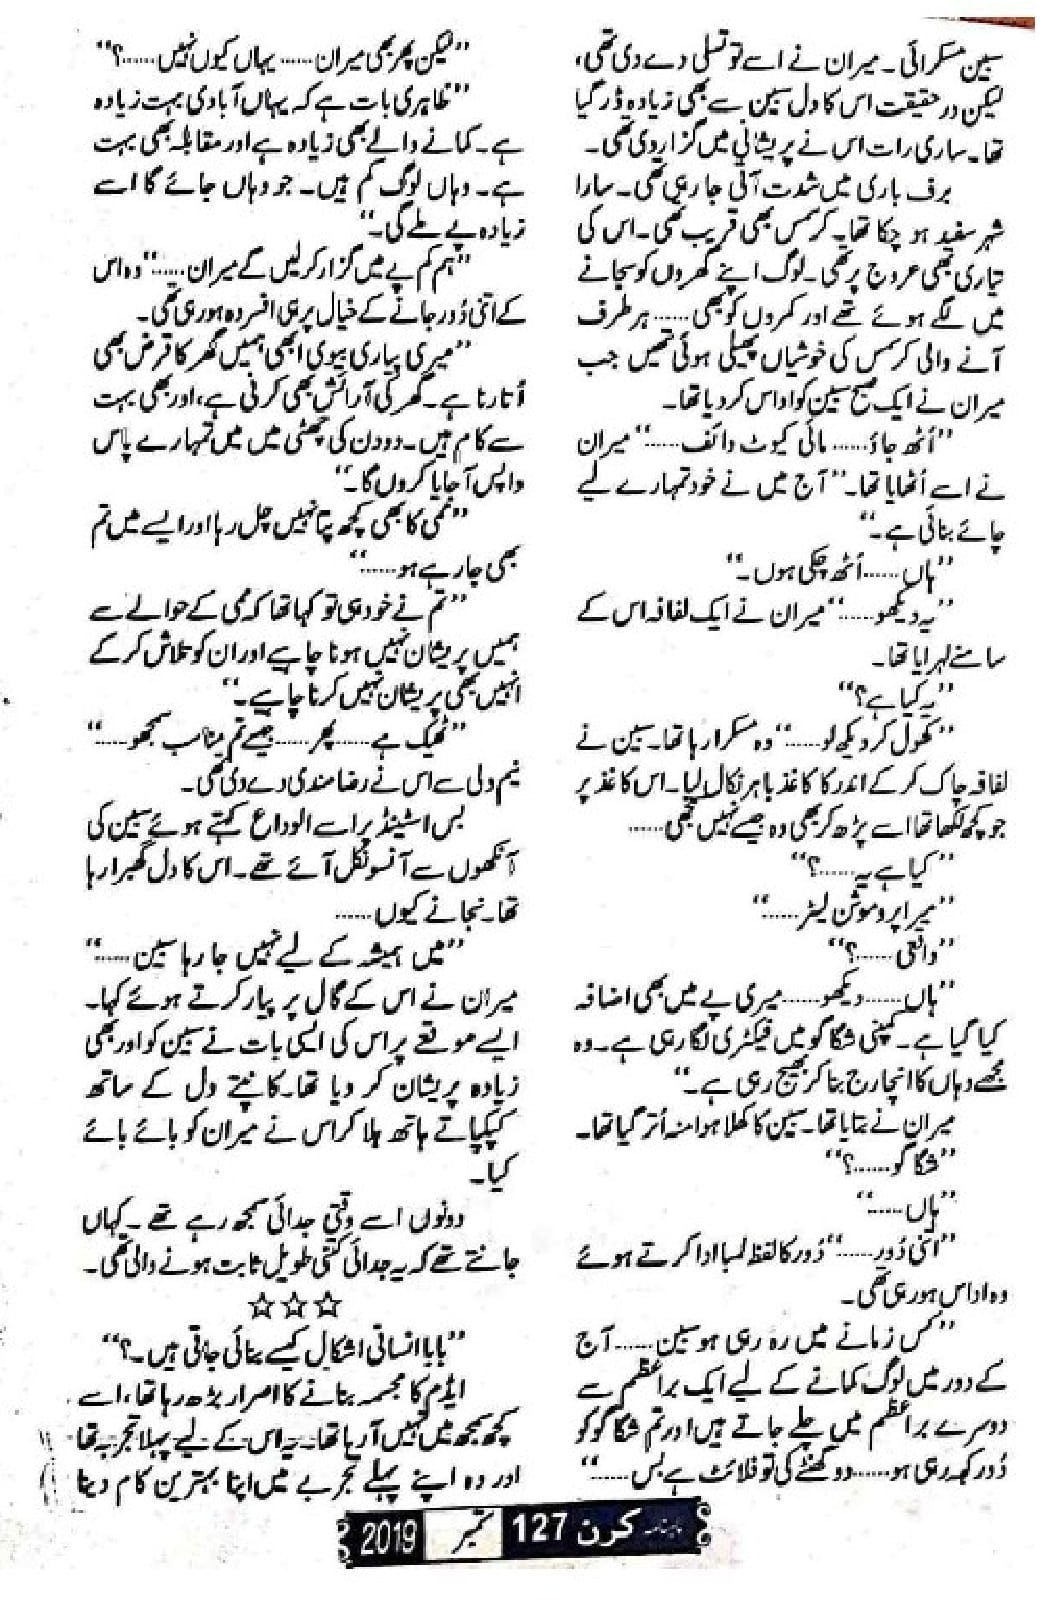 سبین مسکرائی۔ میران نے اسے تو تسلی دے دی تھی،
لیکن درحقیقت اس کا دل سبین سے بھی زیادہ ڈر گیا
تھا۔ ساری رات اس نے پریشانی میں گزار دی تھی۔
برف باری میں شدت آتی جا رہی تھی۔ سارا
شہر سفید ہو چکا تھا۔ کرسمس بھی قریب تھی۔ اس کی
تیاری بھی عروج پر تھی۔ لوگ اپنے گھروں کو سجانے
میں لگے ہوئے تھے اور کمروں کو بھی...... ہر طرف
آنے والی کرسمس کی خوشیاں پھیلی ہوئی تھیں جب
میران نے ایک صبح سبین کو اداس کر دیا تھا۔
”اُٹھ جاؤ...... مائی کیوٹ وائف......“ میران
نے اسے اُٹھایا تھا۔ ”آج میں نے خود تمہارے لیے
چائے بنائی ہے۔“
”ہاں...... اُٹھ چکی ہوں۔“
”یہ دیکھو......“ میران نے ایک لفافہ اس کے
سامنے لہرایا تھا۔
”یہ کیا ہے؟“
”کھول کر دیکھ لو......“ وہ مسکرا رہا تھا۔ سبین نے
لفافہ چاک کر کے اندر کا کاغذ باہر نکال لیا۔ اس کاغذ پر
جو کچھ لکھا تھا اسے پڑھ کر بھی وہ جیسے نہیں تھی......
”کیا ہے یہ......؟“
”میرا پروموشن لیٹر......“
”واقعی......؟“
”ہاں...... دیکھو...... میری پے میں بھی اضافہ
کیا گیا ہے۔ کمپنی شکاگو میں فیکٹری لگا رہی ہے۔ وہ
مجھے وہاں کا انچارج بنا کر بھیج رہی ہے۔“
میران نے بتایا تھا۔ سبین کا کھلا ہوا منہ اُتر گیا تھا۔
”شکاگو......؟“
”ہاں......“
”اتنی دُور......“ دُور کا لفظ لمبا ادا کرتے ہوئے
وہ اداس ہو رہی تھی۔
”کس زمانے میں رہ رہی ہو سبین...... آج
کے دور میں لوگ کمانے کے لیے ایک براعظم سے
دوسرے براعظم میں چلے جاتے ہیں اور تم شکاگو کو
دُور کہہ رہی ہو...... دو گھنٹے کی تو فلائٹ ہے بس......“
”لیکن پھر بھی میران...... یہاں کیوں نہیں......؟“
”ظاہری بات ہے کہ یہاں آبادی بہت زیادہ
ہے۔ کمانے والے بھی زیادہ ہے اور مقابلہ بھی بہت
ہے۔ وہاں لوگ کم ہیں۔ جو وہاں جائے گا اسے
زیادہ پے ملے گی۔“
”ہم کم پے میں گزار کر لیں گے میران......“ وہ اس
کے اتنی دُور جانے کے خیال پر ہی افسردہ ہو رہی تھی۔
”میری پیاری بیوی ابھی ہمیں گھر کا قرض بھی
اُتارنا ہے۔ گھر کی آرائش بھی کرنی ہے، اور بھی بہت
سے کام ہیں۔ دو دن کی چھٹی میں میں تمہارے پاس
واپس آ جایا کروں گا۔“
”ممی کا بھی کچھ پتا نہیں چل رہا اور ایسے میں تم
بھی جا رہے ہو......“
”تم نے خود ہی تو کہا تھا کہ ممی کے حوالے سے
ہمیں پریشان نہیں ہونا چاہیے اور ان کو تلاش کر کے
انہیں بھی پریشان نہیں کرنا چاہیے۔“
”ٹھیک ہے...... پھر...... جیسے تم مناسب سمجھو......“
نیم دلی سے اس نے رضا مندی دے دی تھی۔
بس اسٹینڈ پر اسے الوداع کہتے ہوئے سبین کی
آنکھوں سے آنسو نکل آئے تھے۔ اس کا دل گھبرا رہا
تھا۔ نجانے کیوں......
”میں ہمیشہ کے لیے نہیں جا رہا سبین......“
میران نے اس کے گال پر پیار کرتے ہوئے کہا۔
ایسے موقعے پر اس کی ایسی بات نے سبین کو اور بھی
زیادہ پریشان کر دیا تھا۔ کانپتے دل کے ساتھ
کپکپاتے ہاتھ ہلا کر اس نے میران کو بائے بائے
کیا۔
دونوں اسے وقتی جدائی سمجھ رہے تھے۔ کہاں
جانتے تھے کہ یہ جدائی کتنی طویل ثابت ہونے والی تھی۔
☆☆☆
”بابا انسانی اشکال کیسے بنائی جاتی ہیں۔؟“
ایڈم کا مجسمہ بنانے کا اصرار بڑھ رہا تھا، اسے
کچھ سمجھ میں نہیں آ رہا تھا۔ یہ اس کے لیے پہلا تجربہ تھا
اور وہ اپنے پہلے تجربے میں اپنا بہترین کام دینا
ماہنامہ کرن 127 ستمبر 2019